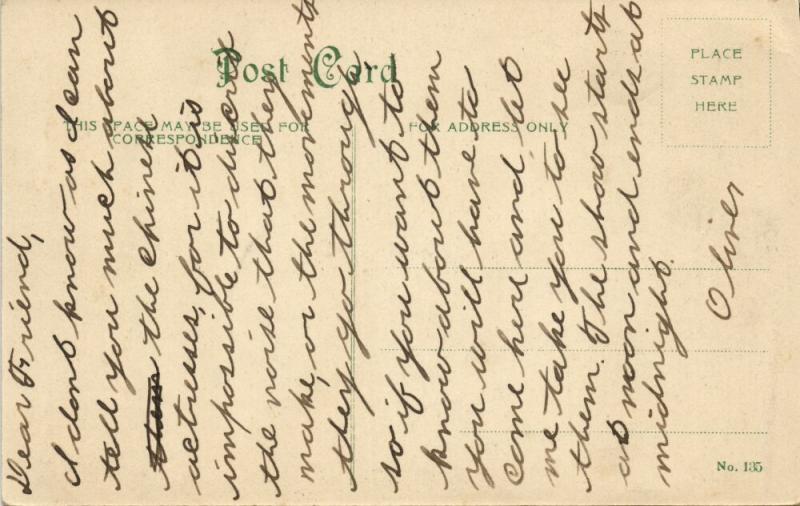 Post Card
THIS SPACE MAY BE USED FOR
CORRESPONDENCE
FOR ADDRESS ONLY
PLACE
STAMP
HERE
Dear Friend,
I dont know as I can
tell you much about
the chinese
actresses, for it is
impossible to discribe
the noise that they
make, or the movements
they go through
so if you want to
know about them
you will have to
come here and let
me take you to see
them. The show starts
at noon and ends at
midnight.
Oliver
No. 135